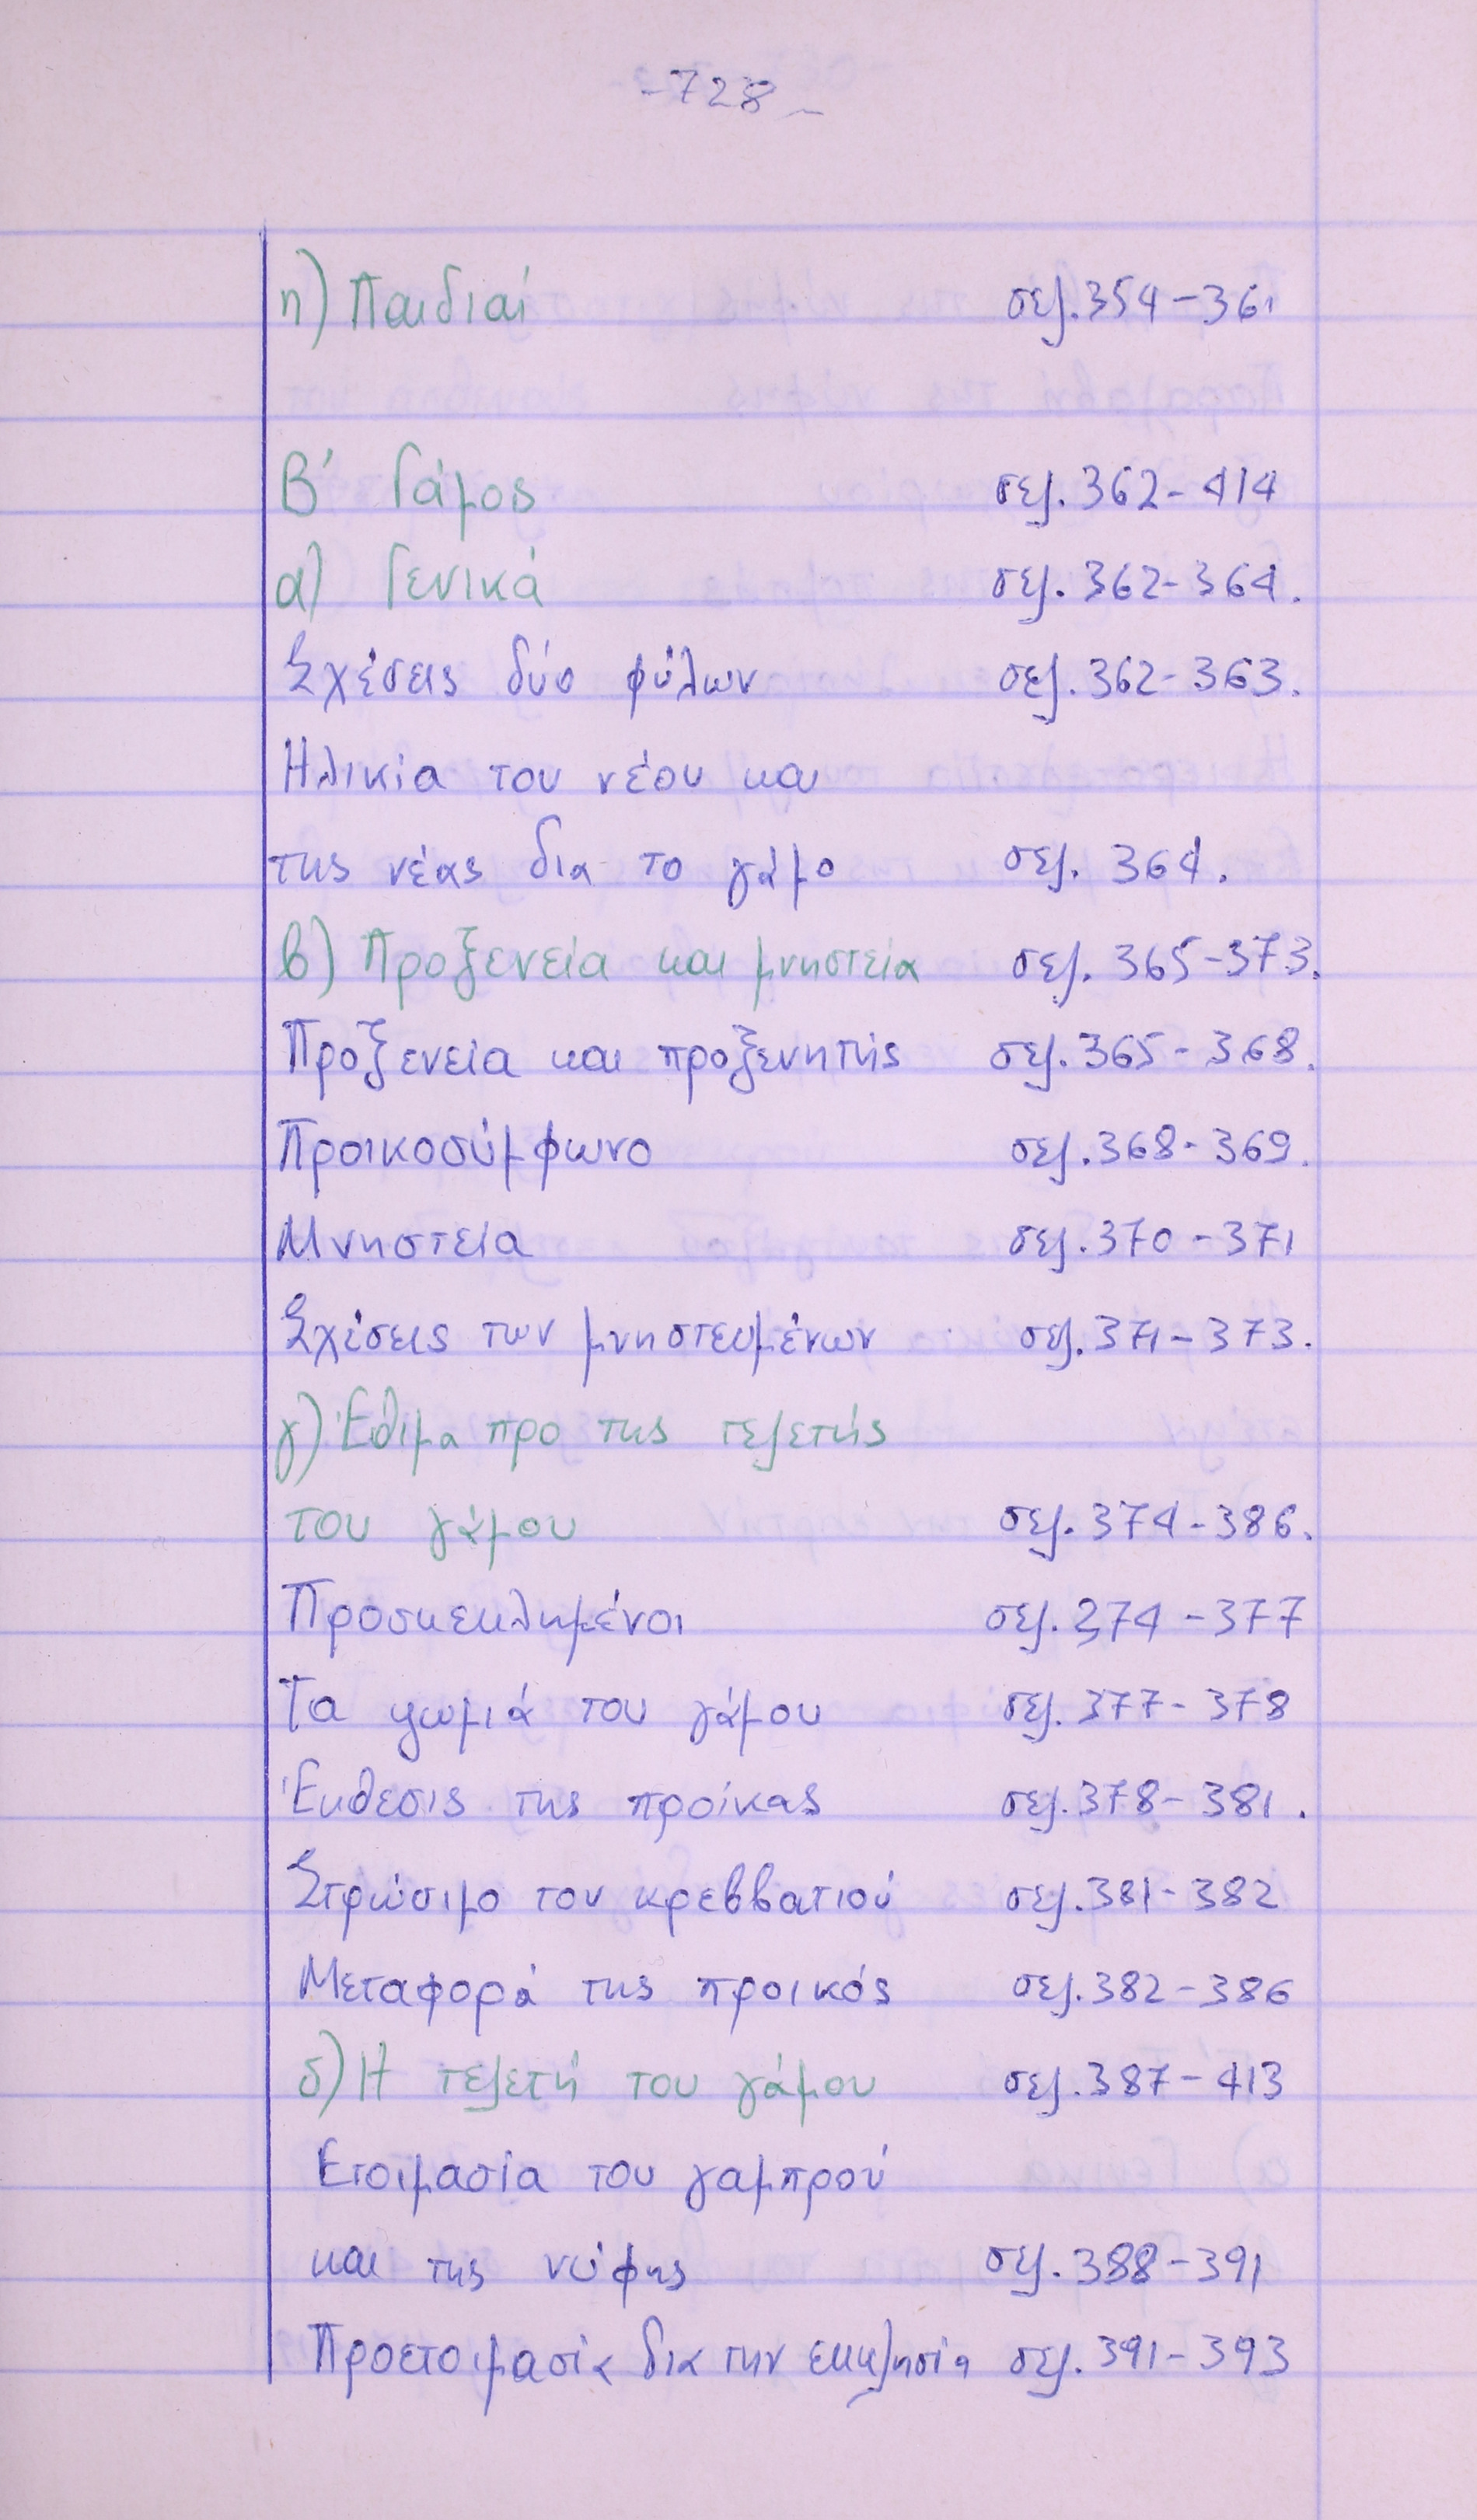 -728-
η) Παιδιαί σελ. 354-361
Β΄ Γάμος σελ. 362-414
α) Γενικά σελ. 362-364.
Σχέσεις δύο φύλων σελ. 362-363.
Ηλικία του νέου και
της νέας δια το γάμο σελ. 364.
β) Προξενεία και μνηστεία σελ. 365-373.
Προξενεία και προξενητής σελ. 365-368.
Προικοσύμφωνο σελ. 368-369.
Μνηστεία σελ. 370-371
Σχέσεις των μνηστευμένων σελ. 371-373.
γ) Έθιμα προ της τελετής
του γάμου σελ. 374-386.
Προσκεκλημένοι σελ. 374-377
Τα ψωμιά του γάμου σελ. 377-378
Έκθεσις της προίκας σελ. 378-381.
Στρώσιμο του κρεββατιού σελ. 381-382
Μεταφορά της προικός σελ. 382-386
δ) Η τελετή του γάμου σελ. 387-413
Ετοιμασία του γαμπρού
και της νύφης σελ. 388-391
Προετοιμασία δια την εκκλησία σελ. 391-393